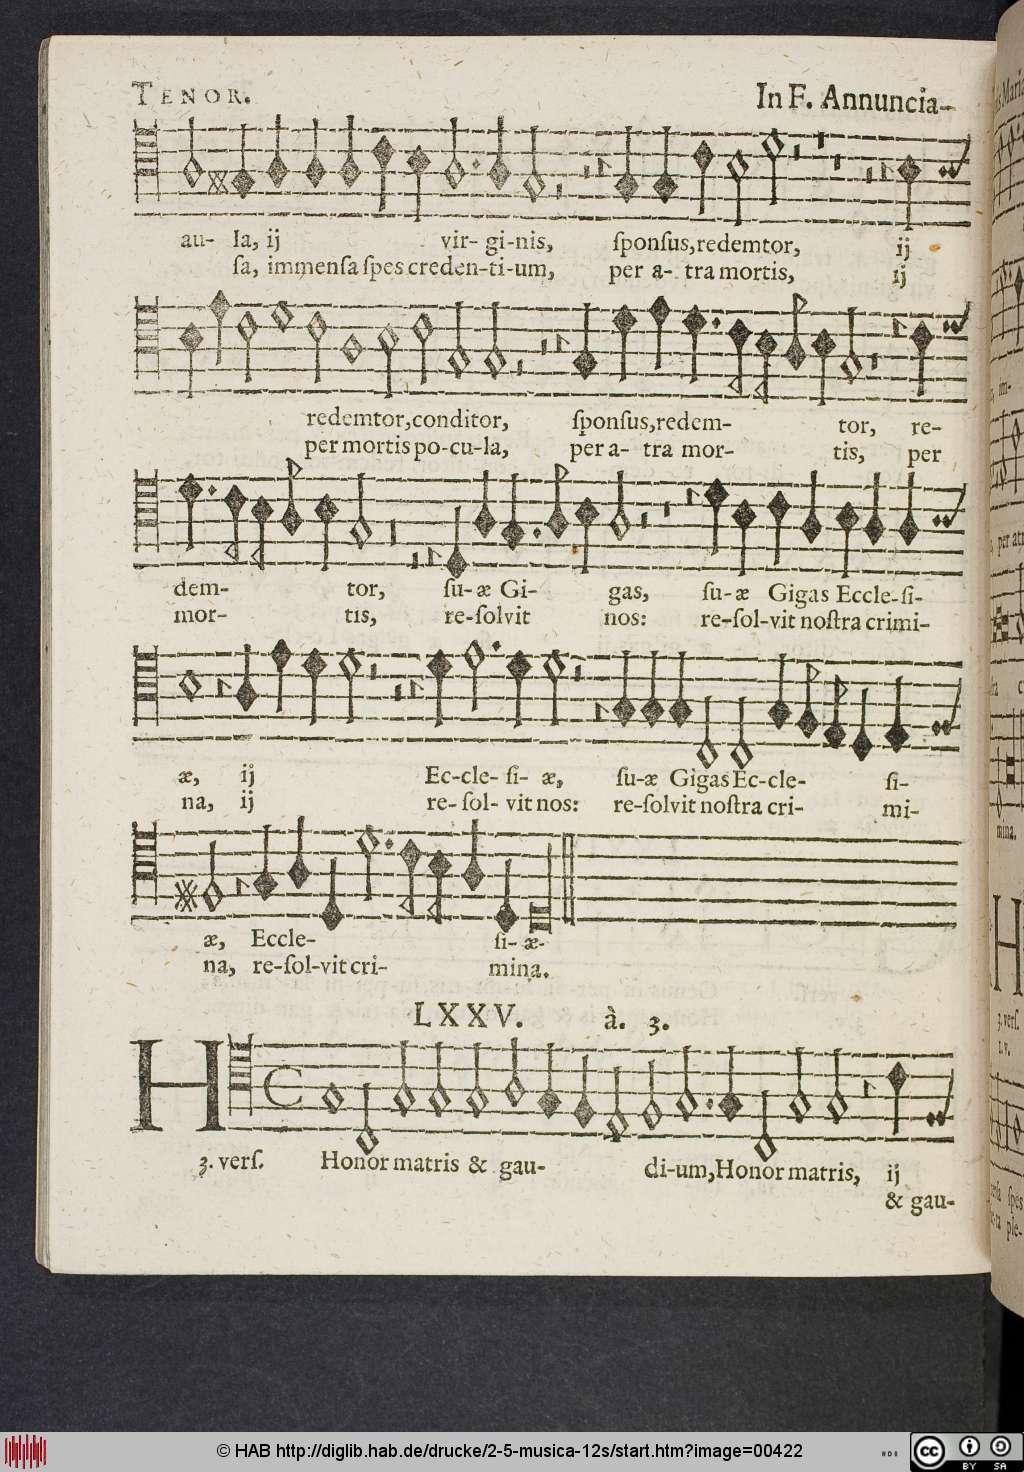 TENOR. In F. Annuncia-
au- la, ij vir- gi-nis, ſponſus, redemtor, ij
ſa, immenſa ſpes creden-ti-um, per a- tra mortis, ij
redemtor, conditor, ſponſus, redem- tor, re-
per mortis po-cu-la, per a- tra mor- tis, per
dem- tor, ſu- æ Gi- gas, ſu- æ Gigas Eccle-ſi-
mor- tis, re-ſolvit nos: re-ſol-vit noſtra crimi-
æ, ij Ec-cle- ſi- æ, ſu-æ Gigas Ec-cle- ſi-
na, ij re- ſol- vit nos: re-ſolvit noſtra cri- mi-
æ, Eccle- ſi- æ.
na, re-ſol-vit cri- mina.
LXXV. à. 3.
H
3. verſ. Honor matris & gau- di-um, Honor matris, ij
& gau-
© HAB http://diglib.hab.de/drucke/2-5-musica-12s/start.htm?image=00422
cc BY SA